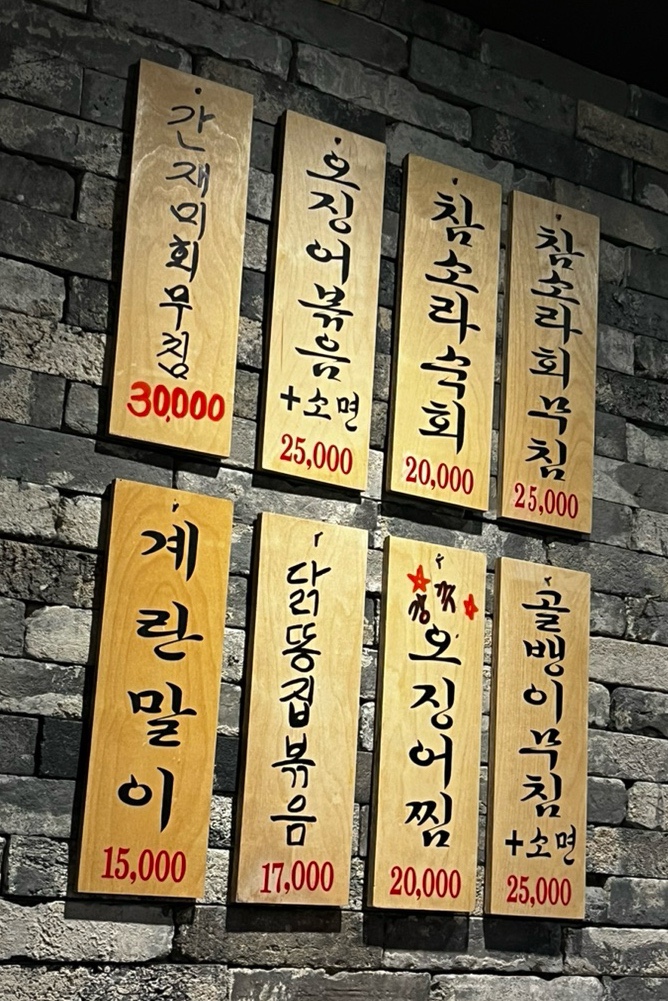 간재미회무침
30,000
오징어볶음
+소면
25,000
참소라숙회
20,000
참소라회무침
25,000
계란말이
15,000
닭똥집볶음
17,000
오징어찜
20,000
골뱅이무침
+소면
25,000